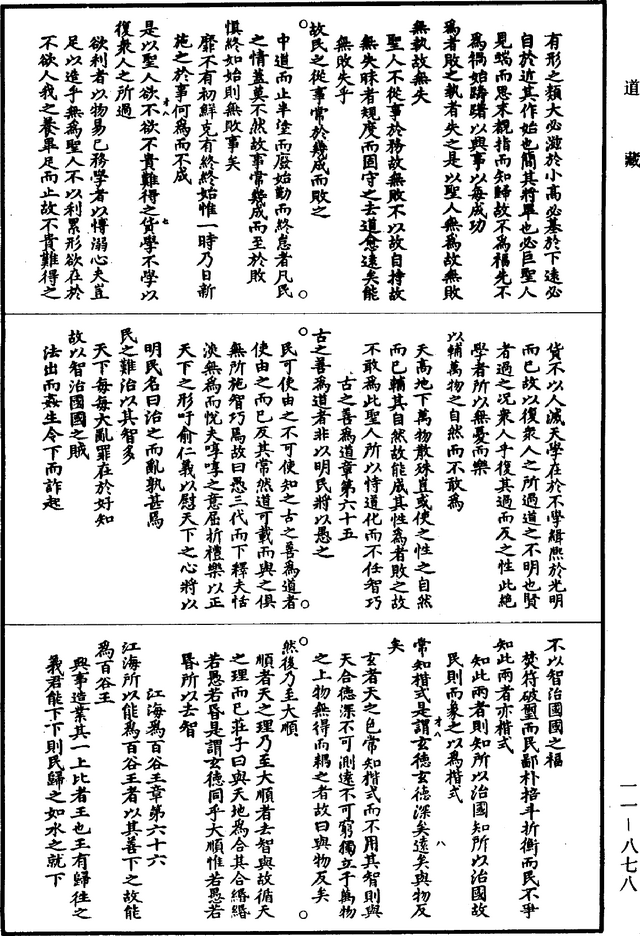 道藏
有形之類大必滋於小高必基於下遠必
自於近其作始也簡其將畢也必巨聖人
見端而思末覩指而知歸故不為福先不
為禍始躊躇以興事以每成功
為者敗之執者失之是以聖人無為故無敗
無執故無失
聖人不從事於務故無敗不以故自持故
無失昧者規度而固守之去道愈遠矣能
無敗失乎
故民之從事常於幾成而敗之
中道而止半塗而廢始勤而終怠者凡民
之情蓋莫不然故事常幾成而至於敗
慎終如始則無敗事矣
靡不有初鮮克有終終始惟一時乃日新
施之於事何為而不成
是以聖人欲不欲不貴難得之貨學不學以
復衆人之所過
欲利者以物易己務學者以慱溺心夫豈
足以造乎無為聖人不以利累形欲在於
不欲人我之養畢足而止故不貴難得之
貨不以人滅天學在於不學緝熙於光明
而已故以復衆人之所過道之不明也賢
者過之况衆人乎復其過而反之性此絶
學者所以無憂而樂
以輔萬物之自然而不敢為
天高地下萬物散殊豈或使之性之自然
而已輔其自然故能成其性為者敗之故
不敢為此聖人所以恃道化而不任智巧
古之善為道章第六十五
古之善為道者非以明民將以愚之
民可使由之不可使知之古之善為道者
使由之而已反其常然道可載而與之俱
無所施智巧焉故曰愚三代而下釋夫恬
淡無為而悦夫啍啍之意屈折禮樂以正
天下之形吁俞仁義以慰天下之心將以
明民名曰治之而亂孰甚焉
民之難治以其智多
天下每每大亂罪在於好知
故以智治國國之賊
法出而姦生令下而詐起
不以智治國國之福
焚符破璽而民鄙朴掊斗折衡而民不爭
知此兩者亦楷式
知此兩者則知所以治國知所以治國故
民則而象之以為楷式
常知楷式是謂玄德玄德深矣遠矣與物反
矣
玄者天之色常知楷式而不用其智則與
天合德深不可測遠不可窮獨立于萬物
之上物無得而耦之者故曰與物反矣
然後乃至大順
順者天之理乃至大順者去智與故循天
之理而已莊子曰與天地為合其合緡緡
若愚若昏是謂玄德同乎大順惟若愚若
昬所以去智
江海為百谷王章第六十六
江海所以能為百谷王者以其善下之故能
為百谷王
興事造業其一上比者王也王有歸往之
義君能下下則民歸之如水之就下
一一—八七八